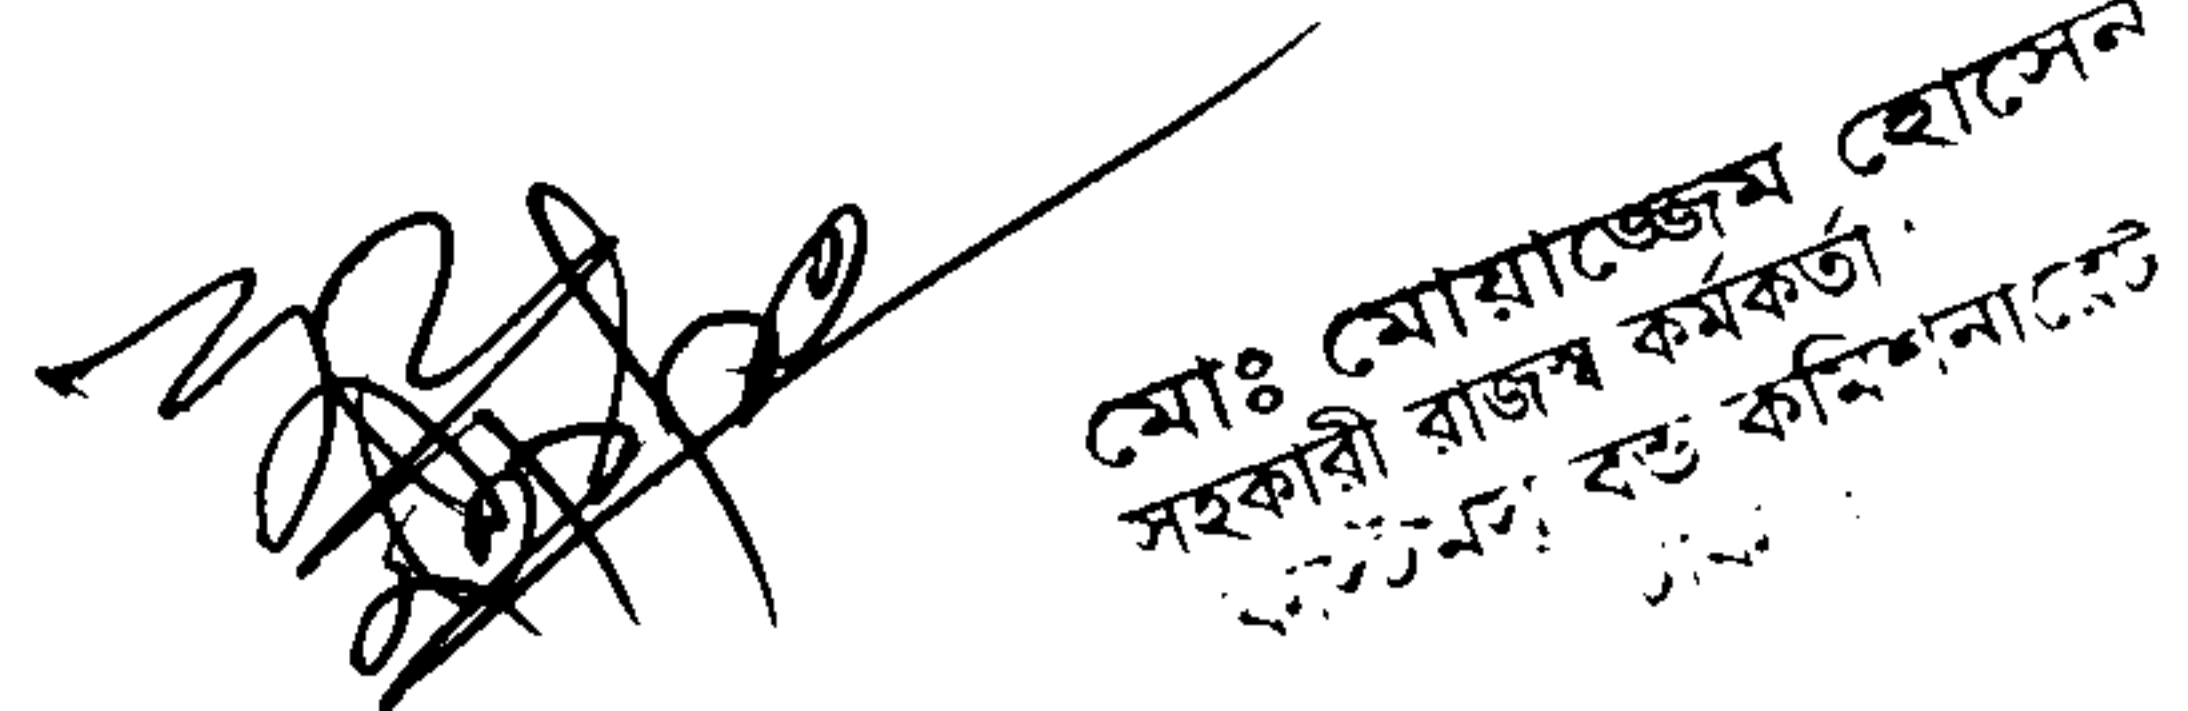 মোঃ মোয়াজ্জেম হোসেন
সহকারী রাজস্ব কর্মকর্তা
বন্ড কমিশনারেট